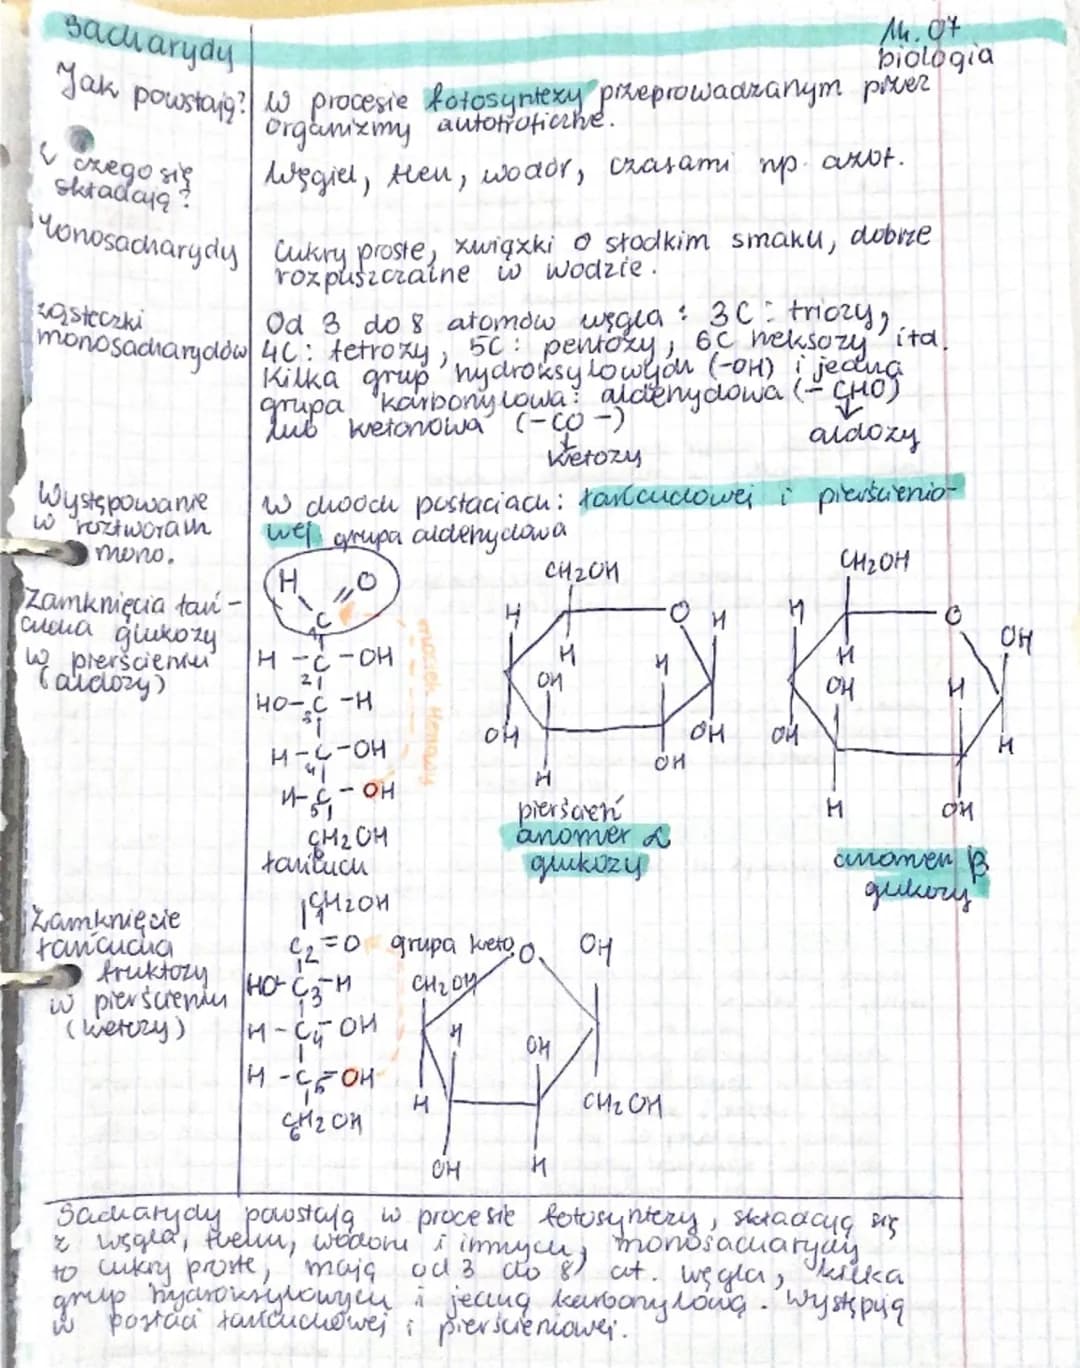 Sacharydy
14.07
biologia
Jak powstają?
W procesie fotosyntezy przeprowadzanym przez
organizmy autotroficzne.
z czego się
składają?
Węgiel, tlen, wodór, czasami np. azot.
Monosacharydy
Cukry proste, związki o słodkim smaku, dobrze
rozpuszczalne w wodzie.
cząsteczki
monosacharydów
Od 3 do 8 atomów węgla: 3C: triozy,
4C: tetrozy, 5C: pentozy, 6C heksozy itd.
Kilka grup hydroksylowych (-OH) i jedna
grupa karbonylowa: aldehydowa (-CHO)
lub ketonowa (-CO-)
aldozy
ketozy
Występowanie
w roztworach
mono.
W dwóch postaciach: łańcuchowej i pierścienio-
wej
grupa aldehydowa
Zamknięcia łań-
cucha glukozy
w pierścieniu
(aldozy)
H O
C
1
H-C-OH
2
HO-C-H
3
H-C-OH
4
H-C-OH
5
CH2OH
6
łańcuch
mostek tlenowy
CH2OH
H O H
H
OH H
OH OH
H OH
pierścień
anomer α
glukozy
CH2OH
H O OH
H
OH H
OH H
H OH
anomer β
glukozy
Zamknięcie
łańcucha
fruktozy
w pierścieniu
(ketozy)
1CH2OH
C2=O grupa keto
HO-C3-H
H-C4-OH
H-C5-OH
CH2OH
6
O OH
CH2OH
H OH
H CH2OH
OH H
Sacharydy powstają w procesie fotosyntezy, składają się
z węgla, tlenu, wodoru i innych, monosacharydy
to cukry proste, mają od 3 do 8 at. węgla, kilka
grup hydroksylowych i jedną karbonylową. Występują
w postaci łańcuchowej i pierścieniowej.